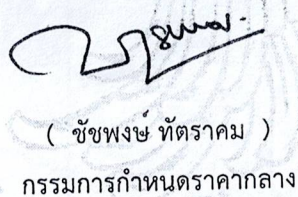 ( ชัชพงษ์ ทัตราคม )
กรรมการกำหนดราคากลาง